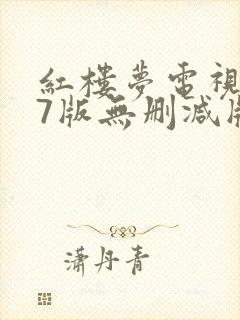 紅樓夢電視
7版無删減版
瀟丹青